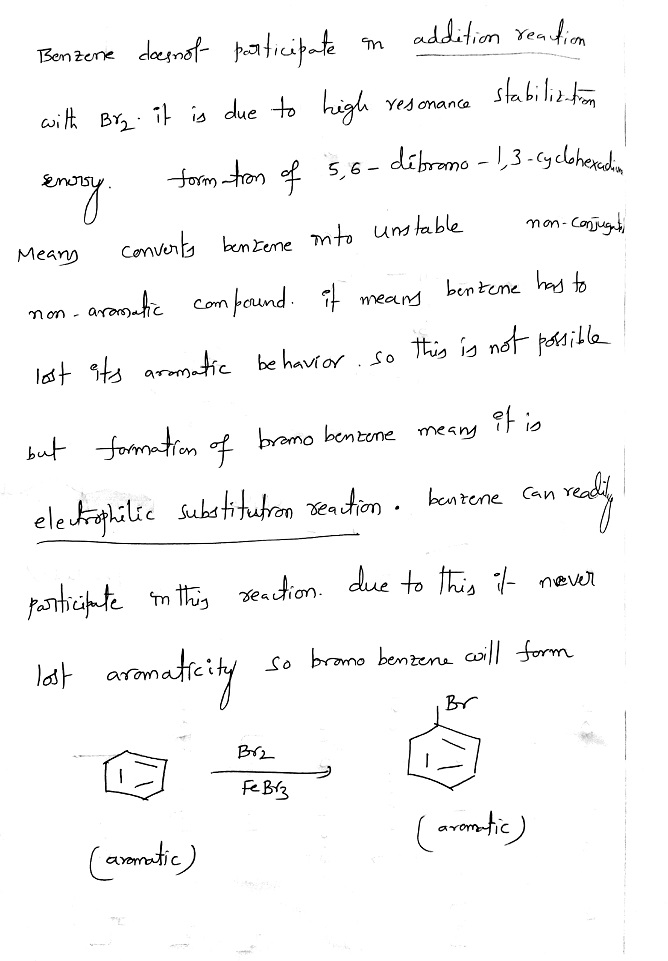 Benzene doesnot participate in addition reaction
with Br2. it is due to high resonance stabiliztion
energy. formation of 5,6-dibromo-1,3-cyclohexadien
Means converts benzene into unstable non-conjugati
non-aromatic compound. it means benzene has to
lost its aromatic behavior. so this is not possible
but formation of bromo benzene means it is
electrophilic substitution reaction. benzene can readily
participate in this reaction. due to this it never
lost aromaticity so bromo benzene will form
Br
Br2
FeBr3
(aromatic)
(aromatic)